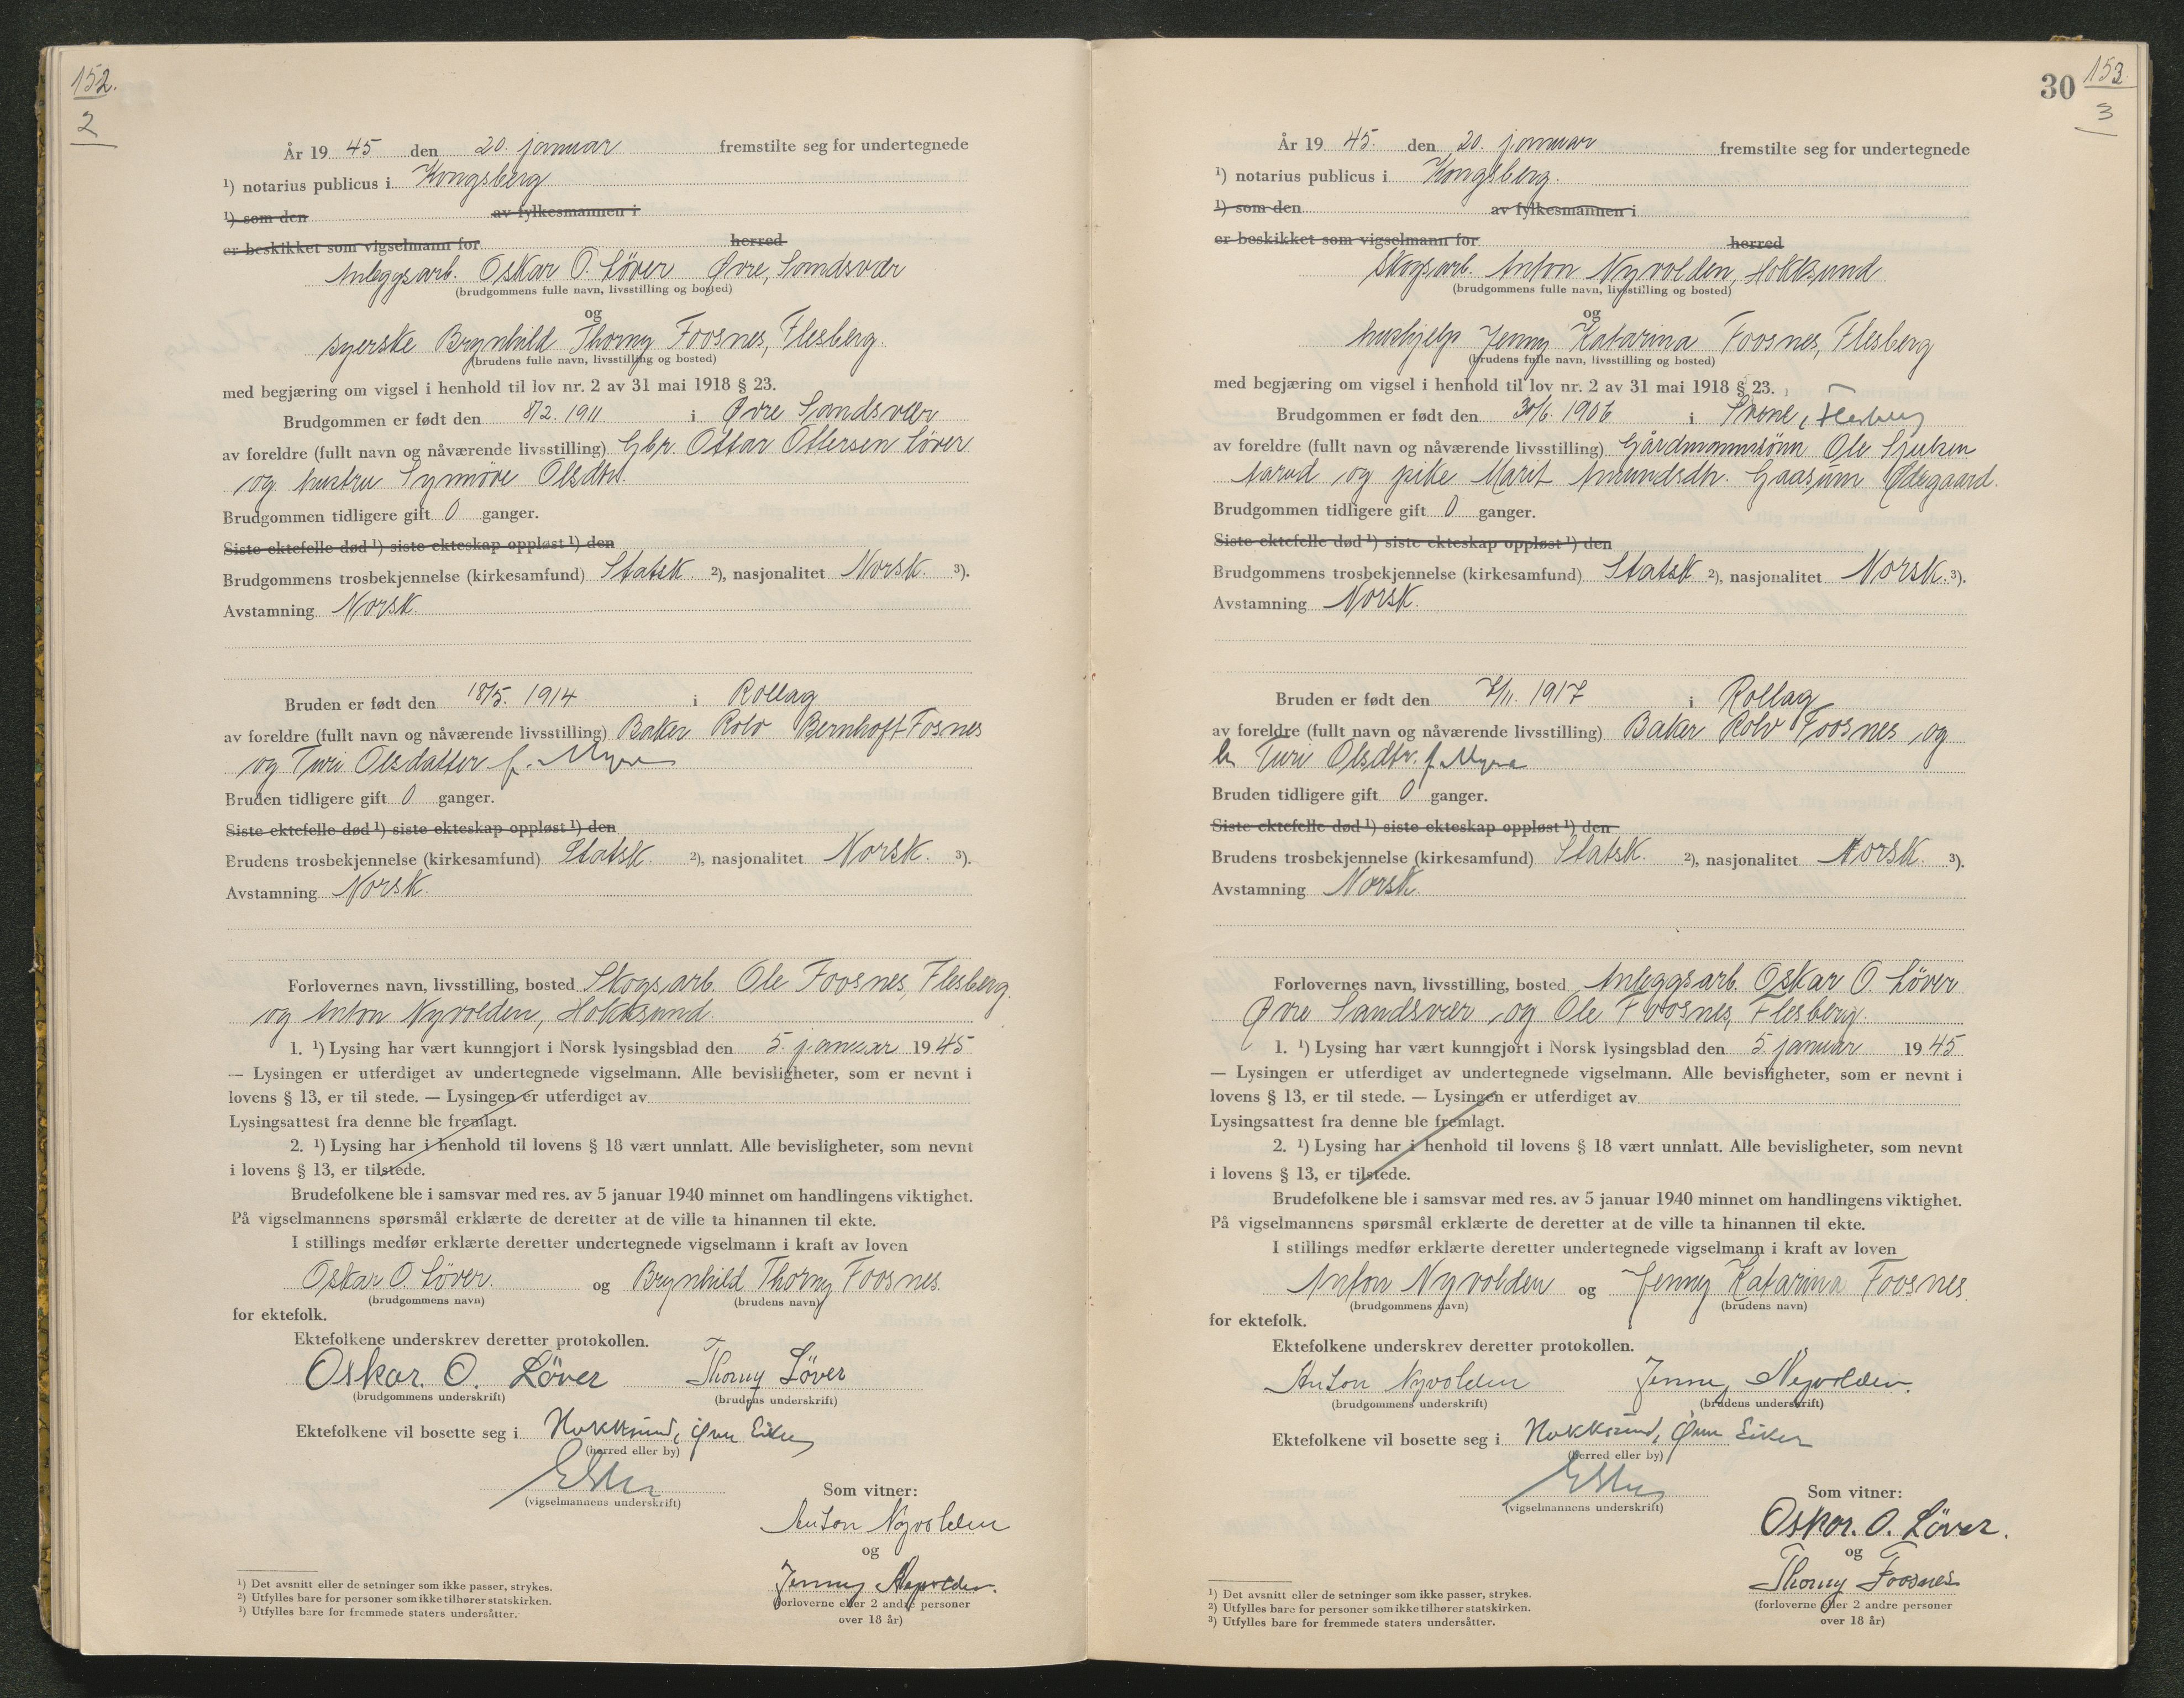 152.
2
År 19 45 den 20. januar fremstilte seg for undertegnede
¹) notarius publicus i Kongsberg
¹) som den av fylkesmannen i
er beskikket som vigselmann for herred
Anleggsarb. Oskar O. Löver Øvre Sandsvær
(brudgommens fulle navn, livsstilling og bosted)
og
syerske Brynhild Thorny Foosnes, Flesberg.
(brudens fulle navn, livsstilling og bosted)
med begjæring om vigsel i henhold til lov nr. 2 av 31 mai 1918 § 23.
Brudgommen er født den 8/2. 1911 i Øvre Sandsvær
av foreldre (fullt navn og nåværende livsstilling) Gbr. Ottar Ottersen Löver
og hustru Synnöve Olsdtr.
Brudgommen tidligere gift 0 ganger.
Siste ektefelle død ¹) siste ekteskap oppløst ¹) den
Brudgommens trosbekjennelse (kirkesamfund) Statsk ²), nasjonalitet Norsk. ³).
Avstamning Norsk.
Bruden er født den 18/5. 1914 i Rollag
av foreldre (fullt navn og nåværende livsstilling) Baker Rolv Bernhoft Fosnes
og Turi Olsdatter f. Myra
Bruden tidligere gift 0 ganger.
Siste ektefelle død ¹) siste ekteskap oppløst ¹) den
Brudens trosbekjennelse (kirkesamfund) Statsk. ²), nasjonalitet Norsk. ³).
Avstamning Norsk.
Forlovernes navn, livsstilling, bosted Skogsarb. Ole Foosnes, Flesberg.
og Anton Nyvolden, Hokksund.
1. ¹) Lysing har vært kunngjort i Norsk lysingsblad den 5. januar 1945
— Lysingen er utferdiget av undertegnede vigselmann. Alle bevisligheter, som er nevnt i
lovens § 13, er til stede. — Lysingen er utferdiget av
Lysingsattest fra denne ble fremlagt.
2. ¹) Lysing har i henhold til lovens § 18 vært unnlatt. Alle bevisligheter, som nevnt
i lovens § 13, er tilstede.
Brudefolkene ble i samsvar med res. av 5 januar 1940 minnet om handlingens viktighet.
På vigselmannens spørsmål erklærte de deretter at de ville ta hinannen til ekte.
I stillings medfør erklærte deretter undertegnede vigselmann i kraft av loven
Oskar O. Löver. og Brynhild Thorny Foosnes.
(brudgommens navn) (brudens navn)
for ektefolk.
Ektefolkene underskrev deretter protokollen.
Oskar. O. Löver Thorny Löver
(brudgommens underskrift) (brudens underskrift)
Ektefolkene vil bosette seg i Hokksund, Øvre Eiker
(herred eller by)
(vigselmannens underskrift)
Som vitner:
Anton Nyvolden
og
Jenny Nyvolden.
(forloverne eller 2 andre personer
over 18 år)
¹) Det avsnitt eller de setninger som ikke passer, strykes.
²) Utfylles bare for personer som ikke tilhører statskirken.
³) Utfylles bare for fremmede staters undersåtter.
30
153.
3
År 19 45. den 20. januar fremstilte seg for undertegnede
¹) notarius publicus i Kongsberg.
¹) som den av fylkesmannen i
er beskikket som vigselmann for herred
Skogsarb. Anton Nyvolden, Hokksund
(brudgommens fulle navn, livsstilling og bosted)
og
hushjelp Jenny Katarina Foosnes, Flesberg
(brudens fulle navn, livsstilling og bosted)
med begjæring om vigsel i henhold til lov nr. 2 av 31 mai 1918 § 23.
Brudgommen er født den 30/6. 1906 i Svene, Flesberg
av foreldre (fullt navn og nåværende livsstilling) Gårdmannssönn Ole
og pike Marit Amundsdtr. Gaasum Ødegaard.
Brudgommen tidligere gift 0 ganger.
Siste ektefelle død ¹) siste ekteskap oppløst ¹) den
Brudgommens trosbekjennelse (kirkesamfund) Statsk ²), nasjonalitet Norsk. ³).
Avstamning Norsk.
Bruden er født den 7/11. 1917 i Rollag
av foreldre (fullt navn og nåværende livsstilling) Baker Rolv Foosnes og
h. Turi Olsdtr. f. Myra
Bruden tidligere gift 0 ganger.
Siste ektefelle død ¹) siste ekteskap oppløst ¹) den
Brudens trosbekjennelse (kirkesamfund) Statsk. ²), nasjonalitet Norsk. ³).
Avstamning Norsk.
Forlovernes navn, livsstilling, bosted Anleggsarb. Oskar O. Löver
Øvre Sandsvær og Ole Foosnes, Flesberg.
1. ¹) Lysing har vært kunngjort i Norsk lysingsblad den 5 januar 1945
— Lysingen er utferdiget av undertegnede vigselmann. Alle bevisligheter, som er nevnt i
lovens § 13, er til stede. — Lysingen er utferdiget av
Lysingsattest fra denne ble fremlagt.
2. ¹) Lysing har i henhold til lovens § 18 vært unnlatt. Alle bevisligheter, som nevnt
i lovens § 13, er tilstede.
Brudefolkene ble i samsvar med res. av 5 januar 1940 minnet om handlingens viktighet.
På vigselmannens spørsmål erklærte de deretter at de ville ta hinannen til ekte.
I stillings medfør erklærte deretter undertegnede vigselmann i kraft av loven
Anton Nyvolden og Jenny Katarina Foosnes.
(brudgommens navn) (brudens navn)
for ektefolk.
Ektefolkene underskrev deretter protokollen.
Anton Nyvolden Jenny Nyvolden.
(brudgommens underskrift) (brudens underskrift)
Ektefolkene vil bosette seg i Hokksund, Øvre Eiker
(herred eller by)
(vigselmannens underskrift)
Som vitner:
Oskar. O. Löver.
og
Thorny Foosnes
(forloverne eller 2 andre personer
over 18 år)
¹) Det avsnitt eller de setninger som ikke passer, strykes.
²) Utfylles bare for personer som ikke tilhører statskirken.
³) Utfylles bare for fremmede staters undersåtter.